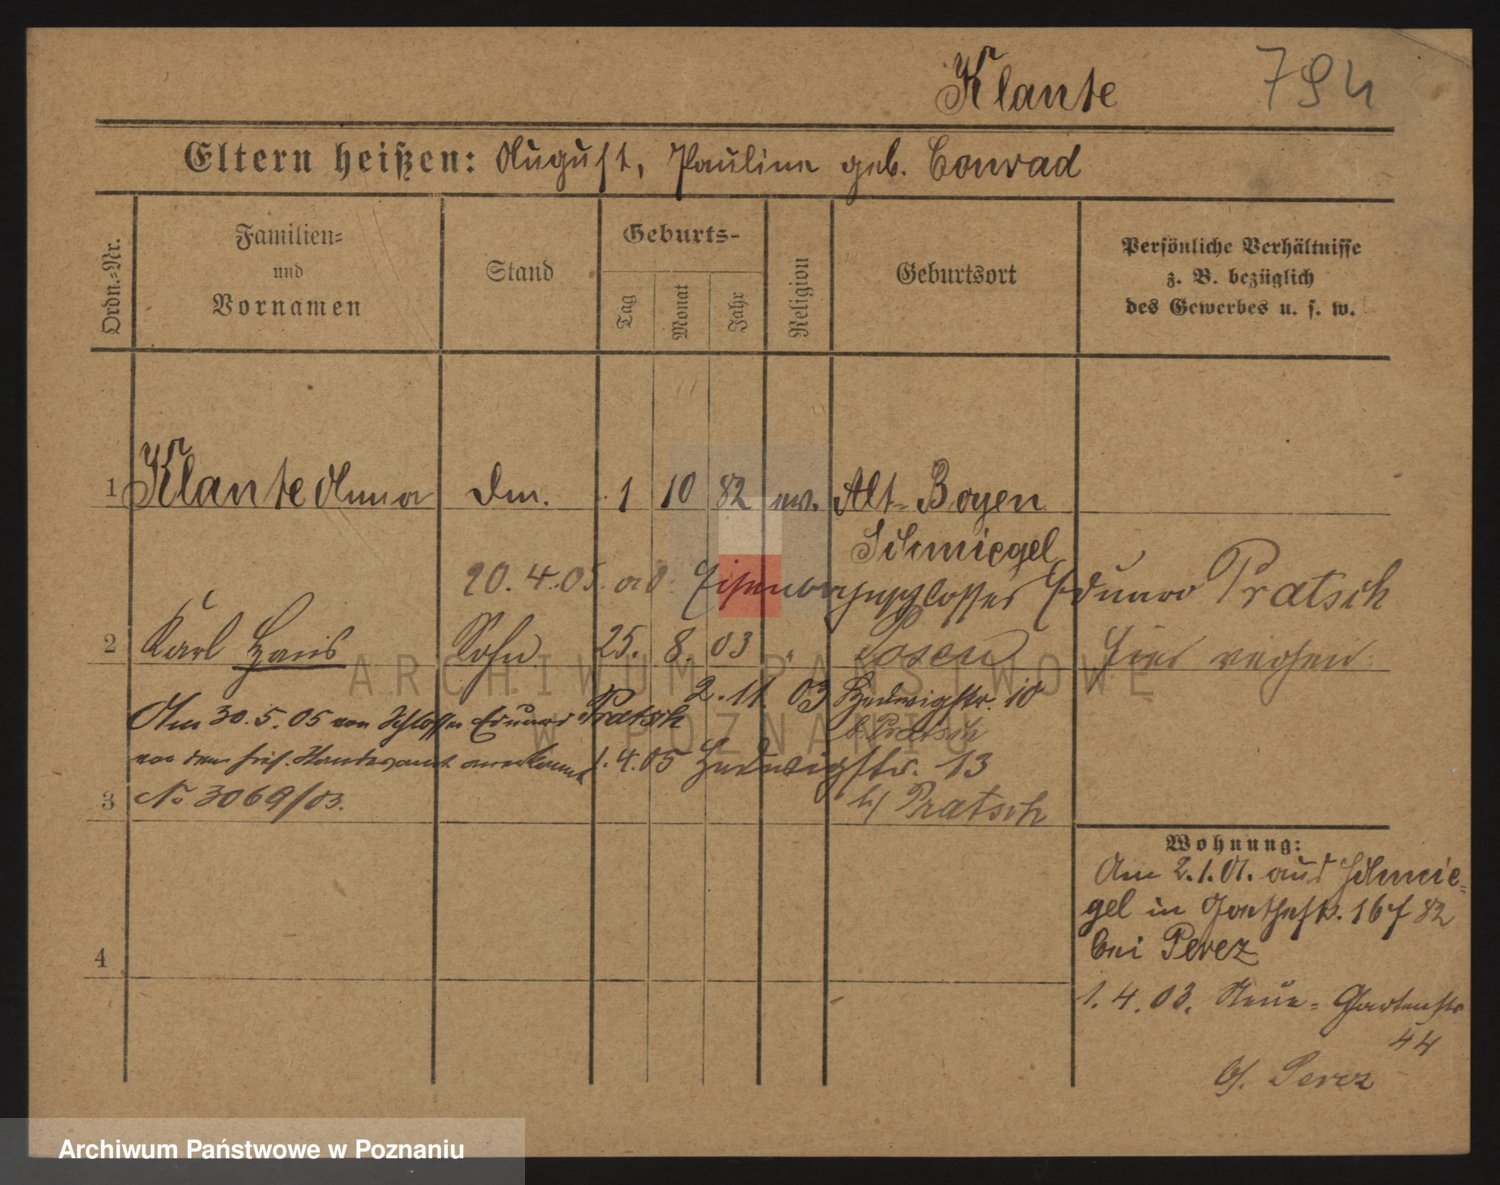 Klante 794
Eltern heißen: August, Pauline geb. Conrad
Ordn.-Nr.
Familien-
und
Vornamen
Stand
Geburts-
Tag
Monat
Jahr
Religion
Geburtsort
Persönliche Verhältnisse
z. B. bezüglich
des Gewerbes u. s. w.
1 Klante Anna Dm. 1 10 82 ev. Alt-Boyen
Schmiegel
20.4.05. Eisenbahnschlosser Eduard Pratsch
2 Karl Hans Sohn 25. 8. 03 Posen hier
2.11.03 Hedwigstr. 10
b. Pratsch
Am 30.5.05 von Schlosser Eduard Pratsch
vor dem hies. Standesamt anerkannt
1.4.05 Hedwigstr. 13
b/ Pratsch
3 No 3069/03.
Wohnung:
Am 2.1.01. aus Schmie-
gel in Goethestr. 16
bei Perez
1.4.03. Neue-Gartenstr
54
b/. Perez
4
ARCHIWUM PAŃSTWOWE
W POZNANIU
Archiwum Państwowe w Poznaniu